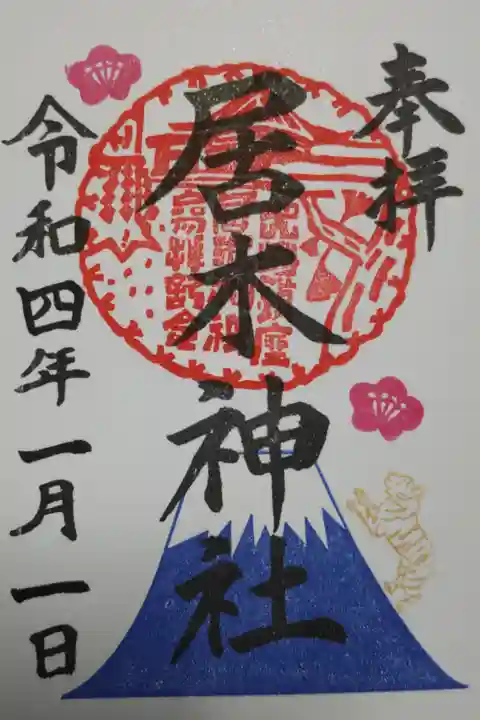 奉拝
居木神社
令和四年一月一日